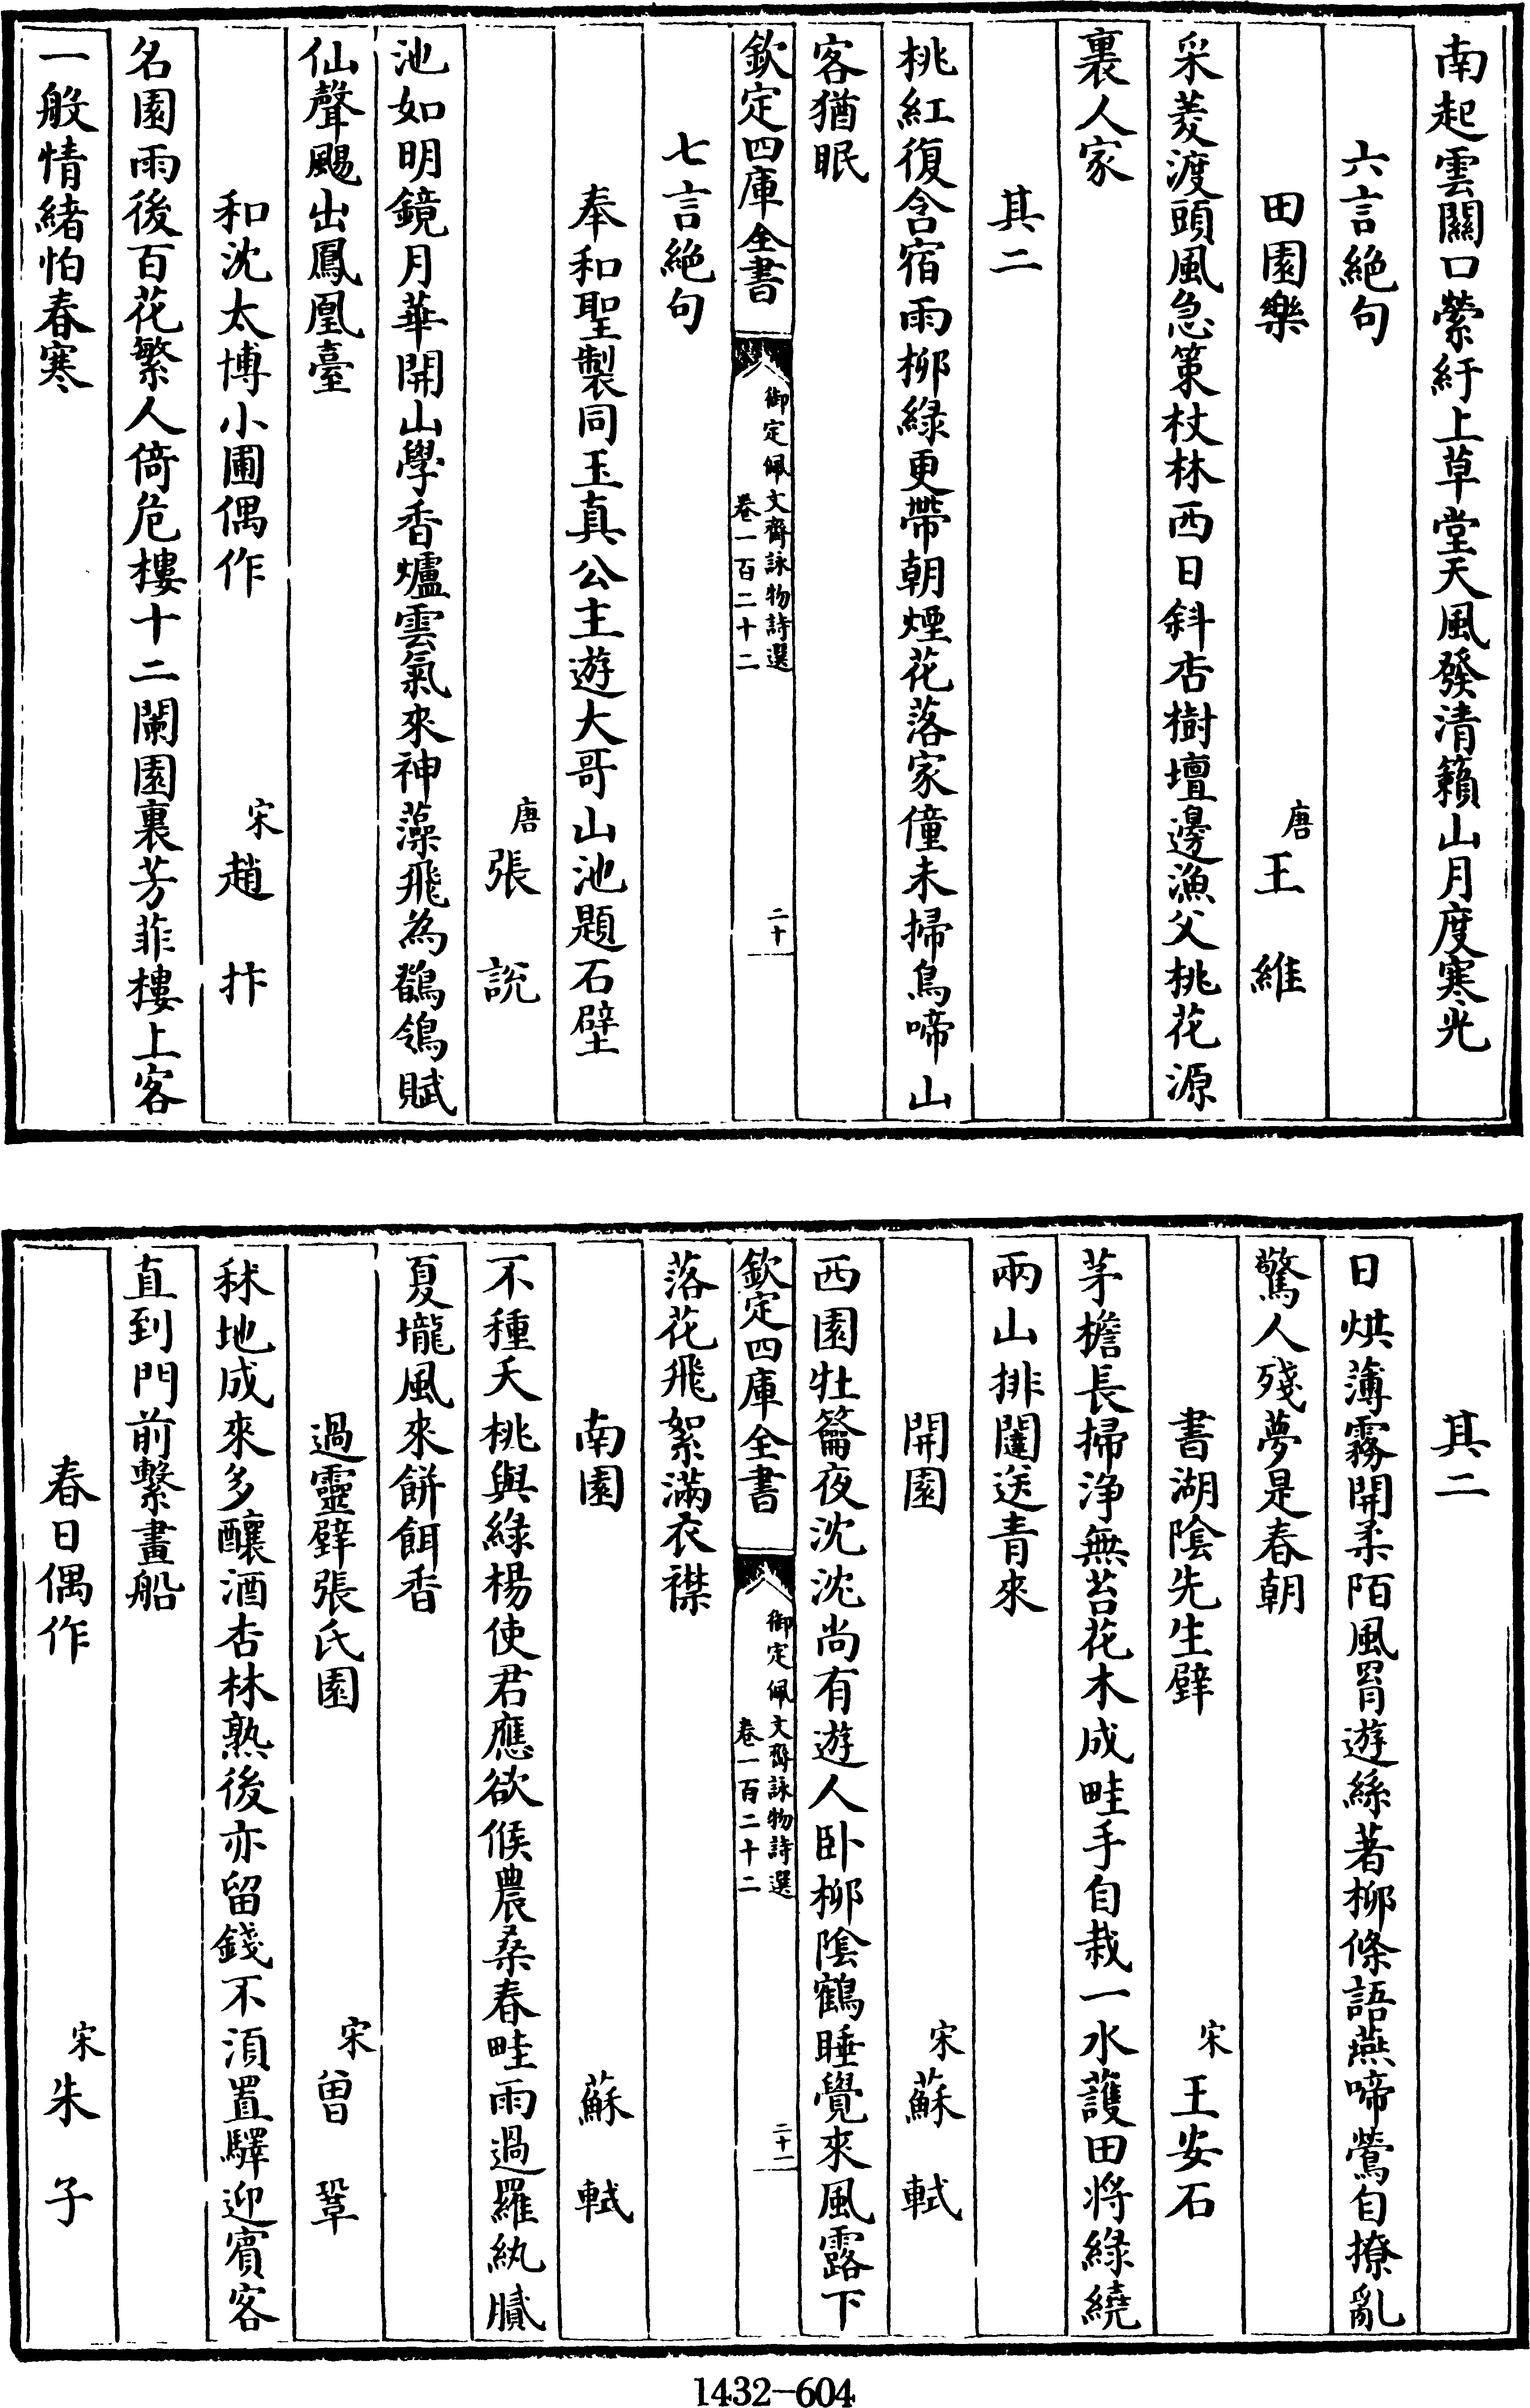 南起雲關口縈紆上草堂天風發清籟山月度寒光
六言絕句
田園樂　唐王維
采菱渡頭風急策杖林西日斜杏樹壇邊漁父桃花源
裏人家
其二
桃紅復含宿雨柳綠更帶朝煙花落家僮未掃鳥啼山
客猶眠
欽定四庫全書　御定佩文齋詠物詩選　卷一百二十二　二十
七言絕句
奉和聖製同玉真公主遊大哥山池題石壁
唐張說
池如明鏡月華開山學香爐雲氣來神藻飛為鶺鴒賦
仙聲颺出鳳凰臺
和沈太博小圃偶作　宋趙抃
名園雨後百花繁人倚危樓十二闌園裏芳菲樓上客
一般情緒怕春寒
其二
日烘薄霧開柔陌風罥遊絲著柳條語燕啼鶯自撩亂
驚人殘夢是春朝
書湖陰先生壁　宋王安石
茅檐長掃淨無苔花木成畦手自栽一水護田將綠繞
兩山排闥送青來
開園　宋蘇軾
西園牡籥夜沈沈尚有遊人卧柳陰鶴睡覺來風露下
欽定四庫全書　御定佩文齋詠物詩選　卷一百二十二　二十一
落花飛絮滿衣襟
南園　蘇軾
不種夭桃與綠楊使君應欲候農桑春畦雨過羅紈膩
夏壠風來餅餌香
過靈壁張氏園　宋曾鞏
秫地成來多釀酒杏林熟後亦留錢不須置驛迎賓客
直到門前繫畫船
春日偶作　宋朱子
1432-604